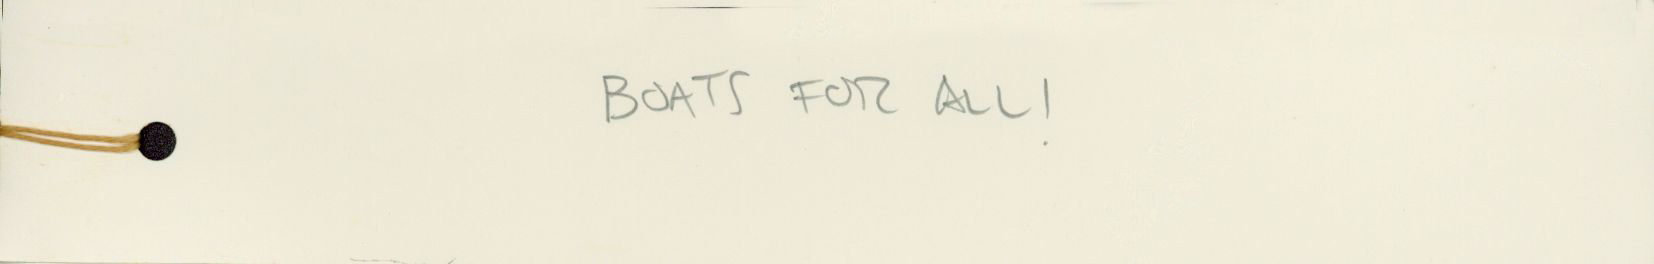 BOATS FOR ALL!